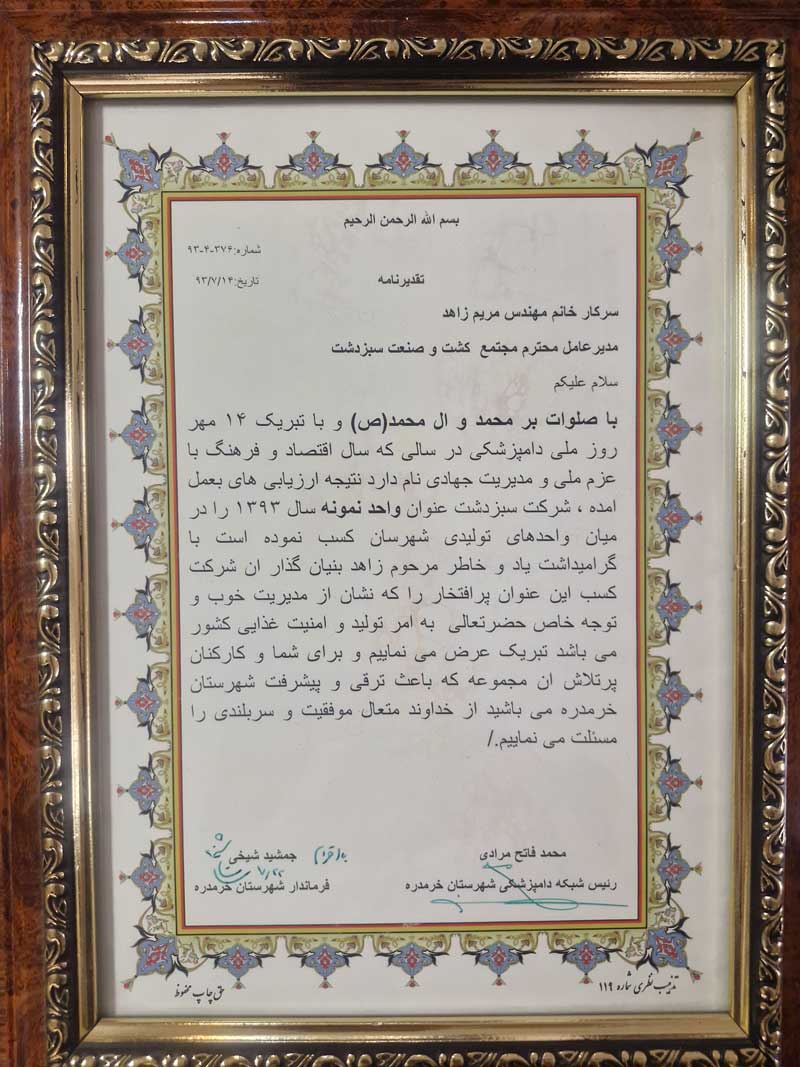 بسم الله الرحمن الرحیم
شماره:۳۷۶-۴-۹۳
تقدیرنامه
تاریخ:۹۳/۷/۱۴
سرکار خانم مهندس مریم زاهد
مدیرعامل محترم مجتمع کشت و صنعت سبزدشت
سلام علیکم
با صلوات بر محمد و ال محمد(ص) و با تبریک ۱۴ مهر
روز ملی دامپزشکی در سالی که سال اقتصاد و فرهنگ با
عزم ملی و مدیریت جهادی نام دارد نتیجه ارزیابی های بعمل
امده ، شرکت سبزدشت عنوان واحد نمونه سال ۱۳۹۳ را در
میان واحدهای تولیدی شهرسان کسب نموده است با
گرامیداشت یاد و خاطر مرحوم زاهد بنیان گذار ان شرکت
کسب این عنوان پرافتخار را که نشان از مدیریت خوب و
توجه خاص حضرتعالی به امر تولید و امنیت غذایی کشور
می باشد تبریک عرض می نماییم و برای شما و کارکنان
پرتلاش ان مجموعه که باعث ترقی و پیشرفت شهرستان
خرمدره می باشید از خداوند متعال موفقیت و سربلندی را
مسئلت می نماییم./
محمد فاتح مرادی
رئیس شبکه دامپزشکی شهرستان خرمدره
جمشید شیخی
فرماندار شهرستان خرمدره
تذهیب نظری شماره ۱۱۹
حق چاپ محفوظ